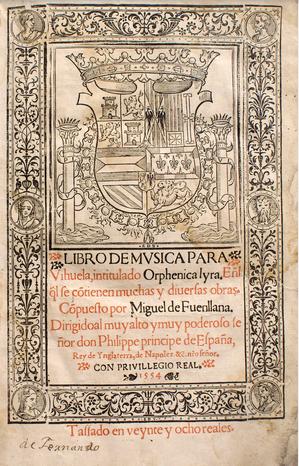 LIBRO DE MVSICA PARA
Vihuela, intitulado Orphenica lyra. Enl
q̃l se cõtienen muchas y diuersas obras.
Cõpuesto por Miguel de Fuenllana.
Dirigido al muy alto y muy poderoso se
ñor don Philippe principe de España,
Rey de Ynglaterra, de Napoles. &c. nr̃o señor.
CON PRIVILLEGIO REAL.
1554
Tassado en veynte y ocho reales.
de Fernando